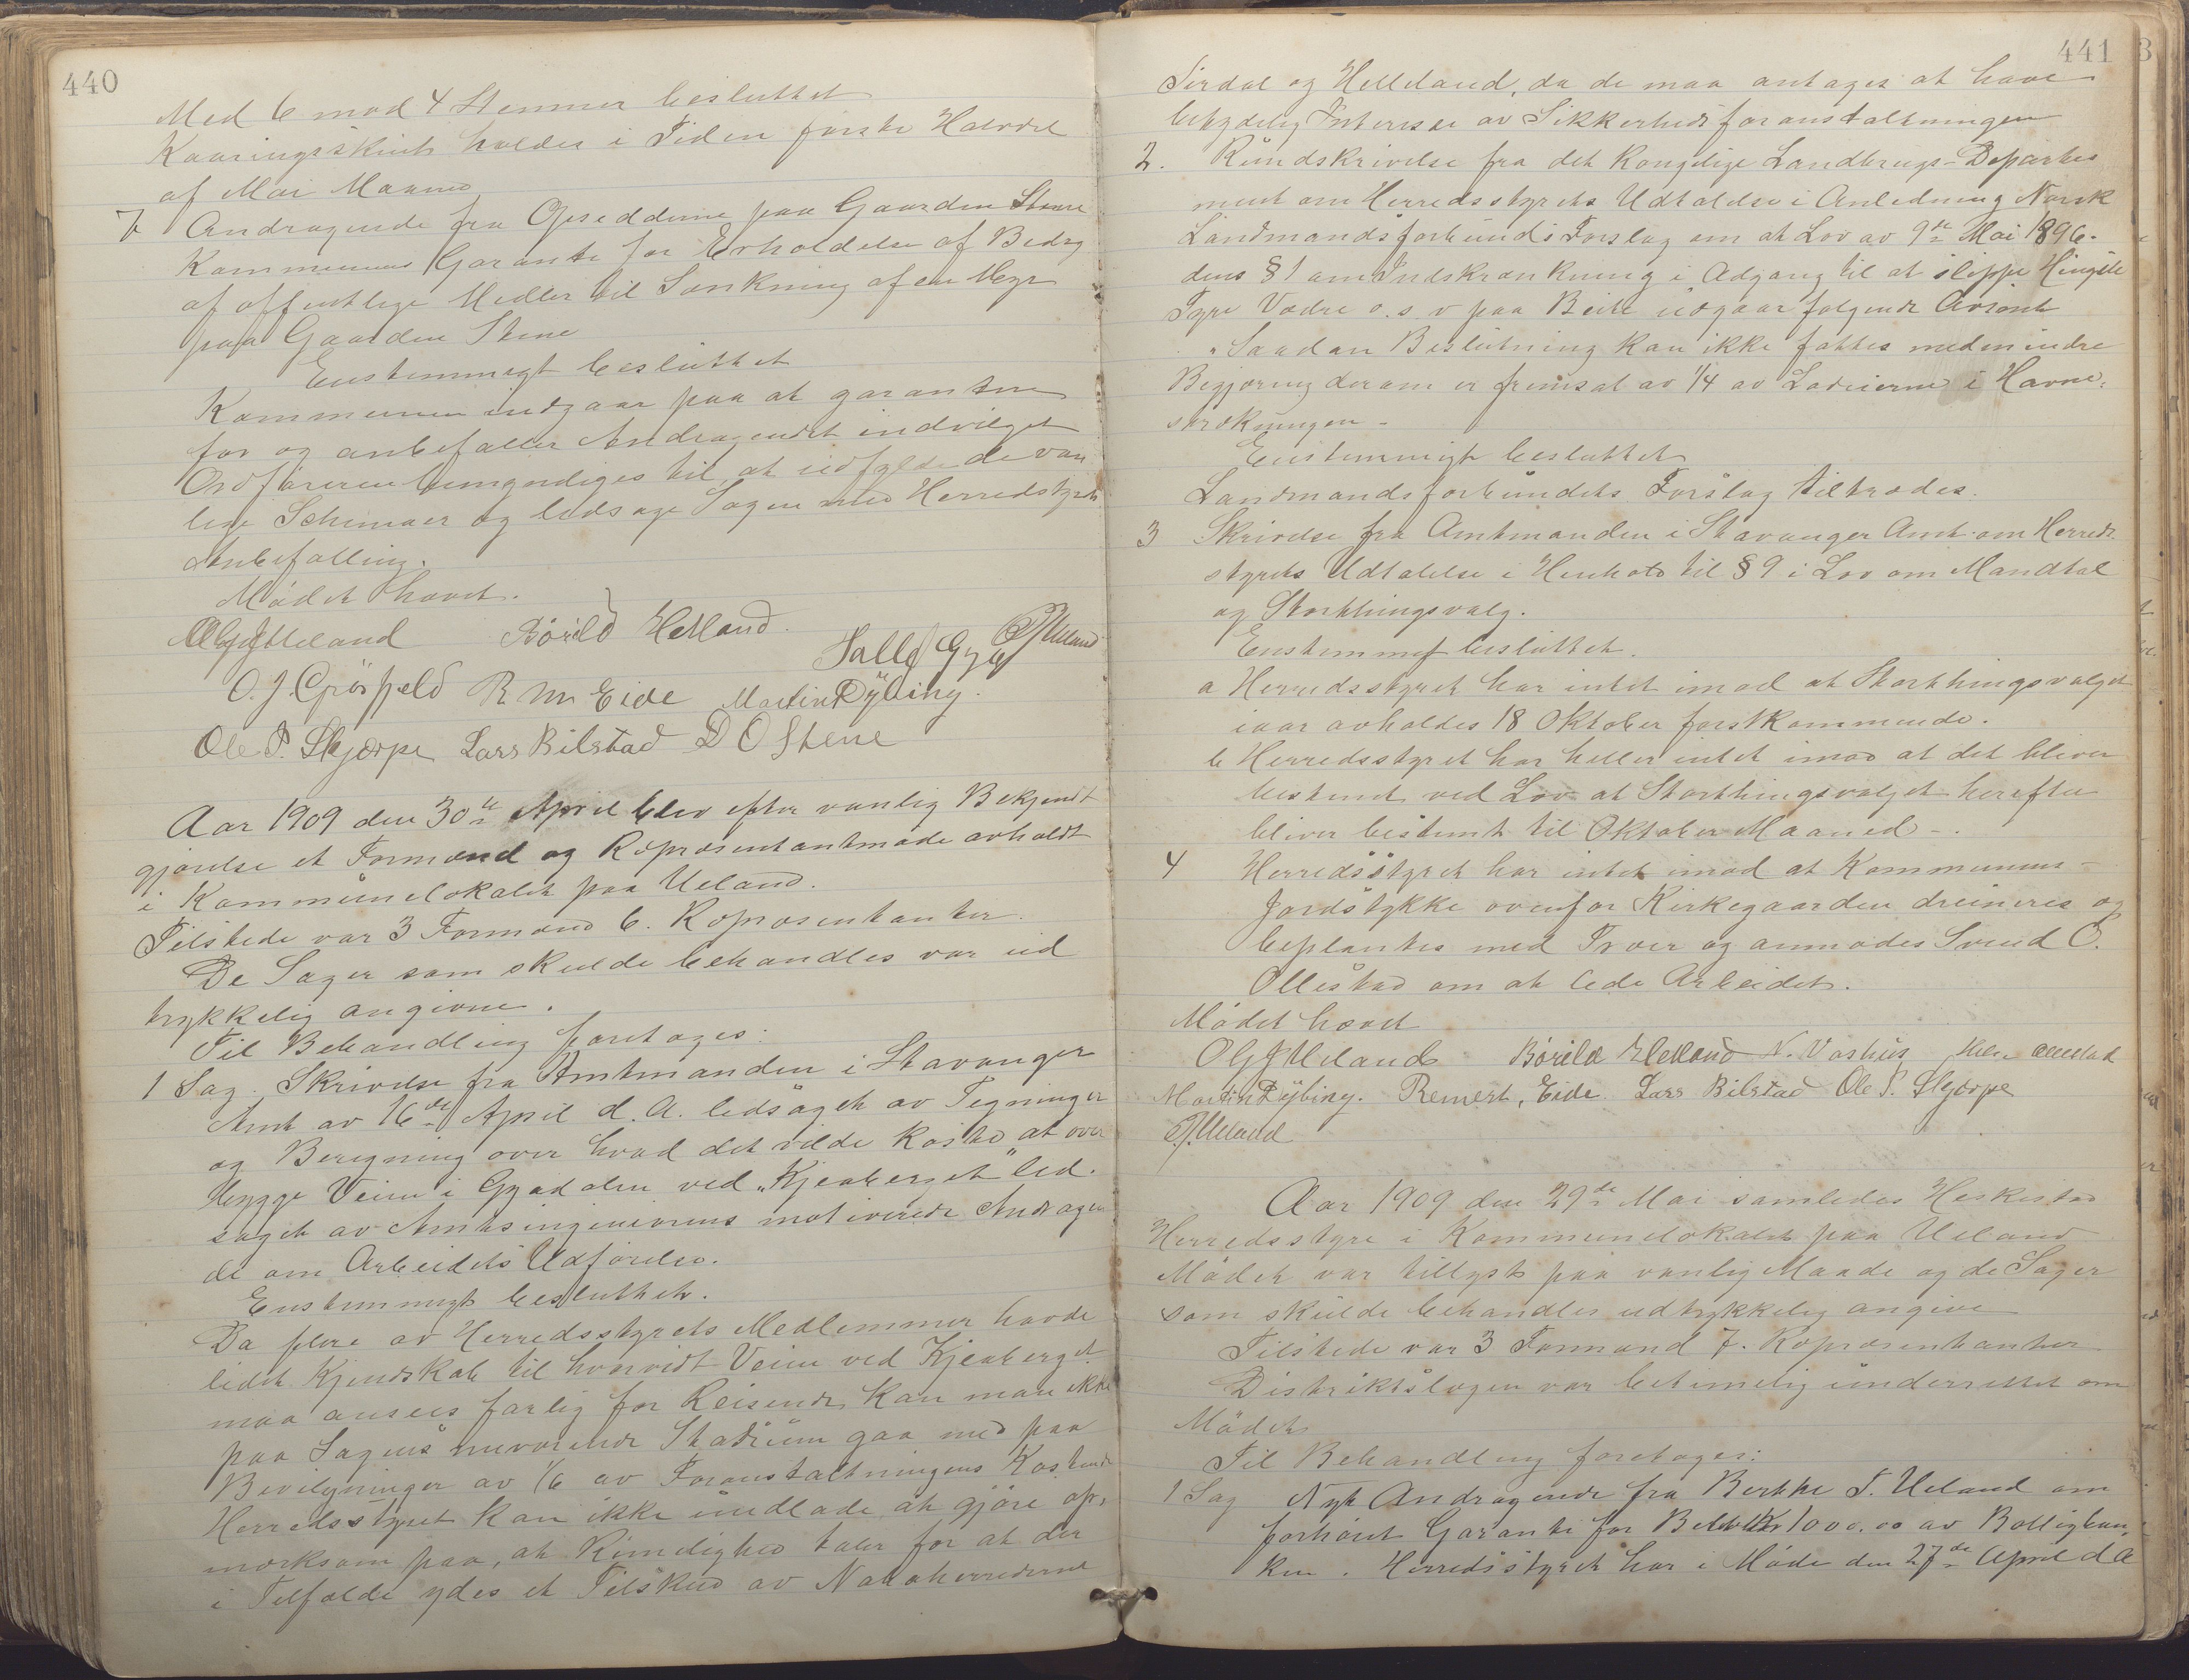 440
Med 6 mod 4 Stemmer besluttet
Kaaringsskuet holdes i Tiden første Halvdel
af Mai Maaned
7 Andragende fra Opsidderne paa Gaarden Stene
Kommunens Garanti for Erholdelse af Bidrag
af offentlige Midler til Sænkning af en Myr
paa Gaarden Stene
Enstemmigt besluttet
Kommunen indgaar paa at garantere
for og anbefaler Andragendet indvilget
Ordføreren bemyndiges til at udfylde de van
lige Schemaer og ledsage Sagen med Herredstyrets
Anbefalling.
Mødet hævet.
Olaf J Ueland Bórild Hetland. Salle Gya P J Ueland
O. J. Grøsfjeld R M Eide Martin Dÿbing.
Ole P. Skjærpe Lars Bilstad D O Stene
Aar 1909 den 30te April blev efter vanlig Bekjendt
gjørelse et Formænd og Repræsentantmøde avholdt
i Kommunelokalet paa Ueland.
Tilstede var 3 Formænd 6. Repræsentanter.
De Sager som skulde behandles var ud
trykkelig angivne.
Til Behandling foretages:
1 Sag. Skrivelse fra Amtmanden i Stavanger
Amt av 16de April d. A. ledsaget av Tegninger
og Beregning over hvad det vilde koste at over
bygge Veien i Gyadalen ved „Kjenberget" led.
saget av Amtsingeniørens motiverede Andragen
de om Arbeidets Udførelse.
Enstemmigt besluttet.
Da flere av Herredsstyrets Medlemmer havde
lidet Kjendskab til hvorvidt Veien ved Kjenberget
maa ansees farlig for Reisende kan man ikke
paa Sagens nuværende Stadium gaa med paa
Bevilgninger av 1/6 av Foranstaltningens Kostende
Herredsstyret kan ikke undlade at gjøre op,
mærksom paa, at Rimelighed taler for at der
i Tilfælde ydes et Tilskud av Naboherrederne
441
Sirdal og Helleland, da de maa antages at have
betydelig Interesse av Sikkerhedsforanstaltningen
2. Rundskrivelse fra det Kongelige Landbrugs-Departe
ment om Herredsstyrets Udtalelse i Anledning Norsk
Landmandsforbunds Forslag om at Lov av 9de Mai 1896.
dens § 1 om Indskrænkning i Adgang til at slippe Hingste
Tyre Vædre o. s. v paa Beite udgaar følgende Avsnit
„Saadan Beslutning kan ikke fattes medmindre
Begjæring derom er fremsat av 1/4 av Lodeierne i Havne-
strækningen -
Enstemmigt besluttet
Landmandsforbundets Forslag tiltrædes.
3 Skrivelse fra Amtmanden i Stavanger Amt om Herreds
styrets Udtalelse i Henhold til § 9 i Lov om Mandtal
og Storthingsvalg.
Enstemmigt besluttet.
a Herredsstyret har intet imod at Storthingsvalget
iaar avholdes 18 Oktober førstkommende.
b Herredsstyret har heller intet imod at det bliver
bestemt ved Lov at Storthingsvalget herefter
bliver bestemt til Oktober Maaned -.
4 Herredsstyret har intet imod at Kommunens-
Jordstykke ovenfor Kirkegaarden dreineres og
beplantes med Træer og anmodes Svend O.
Ollestad om at lede Arbeidet.
Mødet hævet
Ol J Ueland Bórild Hetland N. Vashus Ollestad
Martin Dÿbing. Remert, Eide Lars Bilstad Ole P. Skjærpe
P J Ueland
Aar 1909 den 29de Mai samledes Heskestad
Herredsstyre i Kommunelokalet paa Ueland
Mødet var tillyst paa vanlig Maade og de Sager
som skulde behandles udtrykkelig angive
Tilstede var 3 Formænd 7. Repræsentanter
Distriktslægen var betimelig underrettet om
Mødet
Til Behandling foretages:
1 Sag Nyt Andragende fra Berthe T. Ueland om
forhøiet Garanti for Beløb Kr 1000.00 av Boligban
ken. Herredsstyret har i Møde den 27de April d A